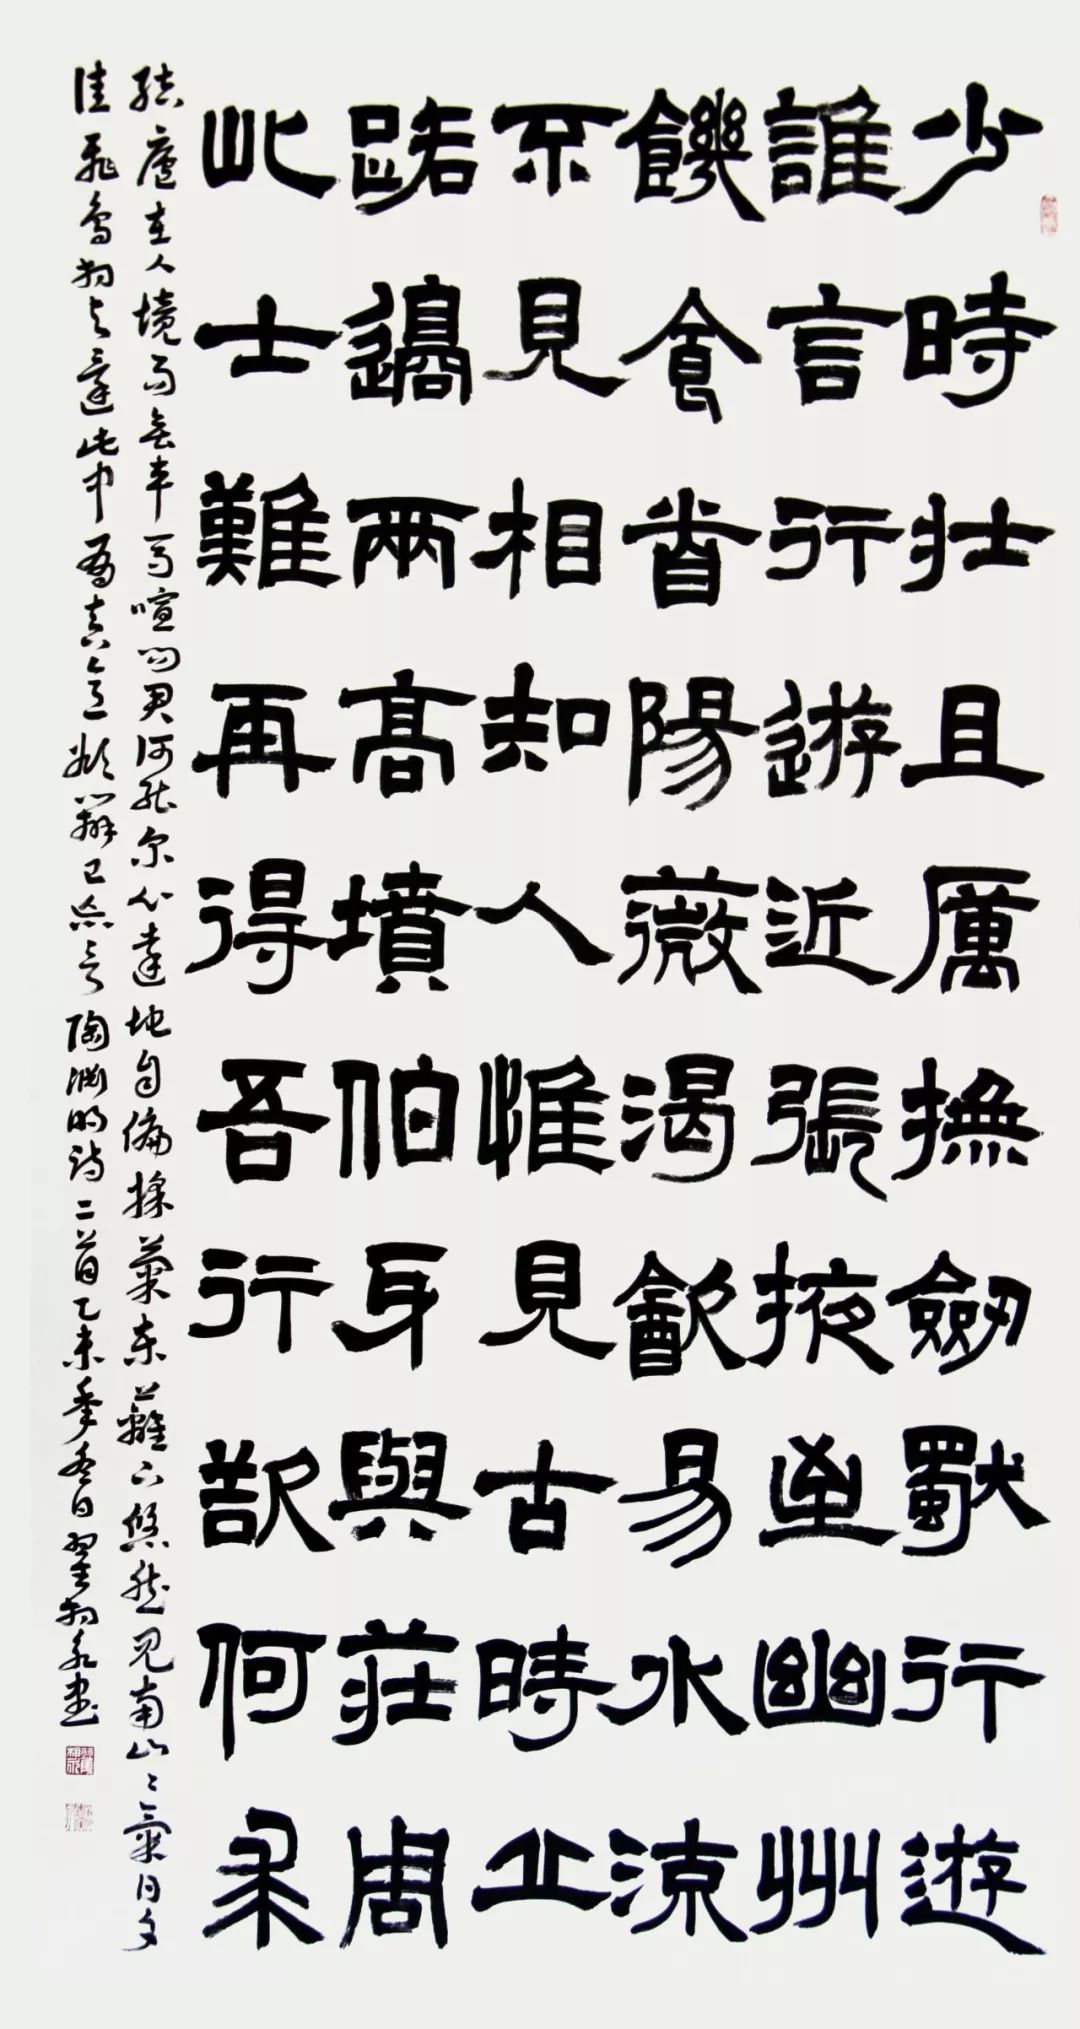 少時壯且厲撫劒獸行遊
誰言行遊近張掖至幽州
饑食首陽薇渴飲易水流
不見相知人惟見古時丘
路邊兩高墳伯牙與莊周
此士難再得吾行欲何求
結廬在人境而無車馬喧問君何能尔心遠地自偏採菊東蘺下悠然見南山山氣日夕
佳飛鳥相與還此中有真意欲辯已忘言陶淵明詩二首乙未年冬日翟相永書